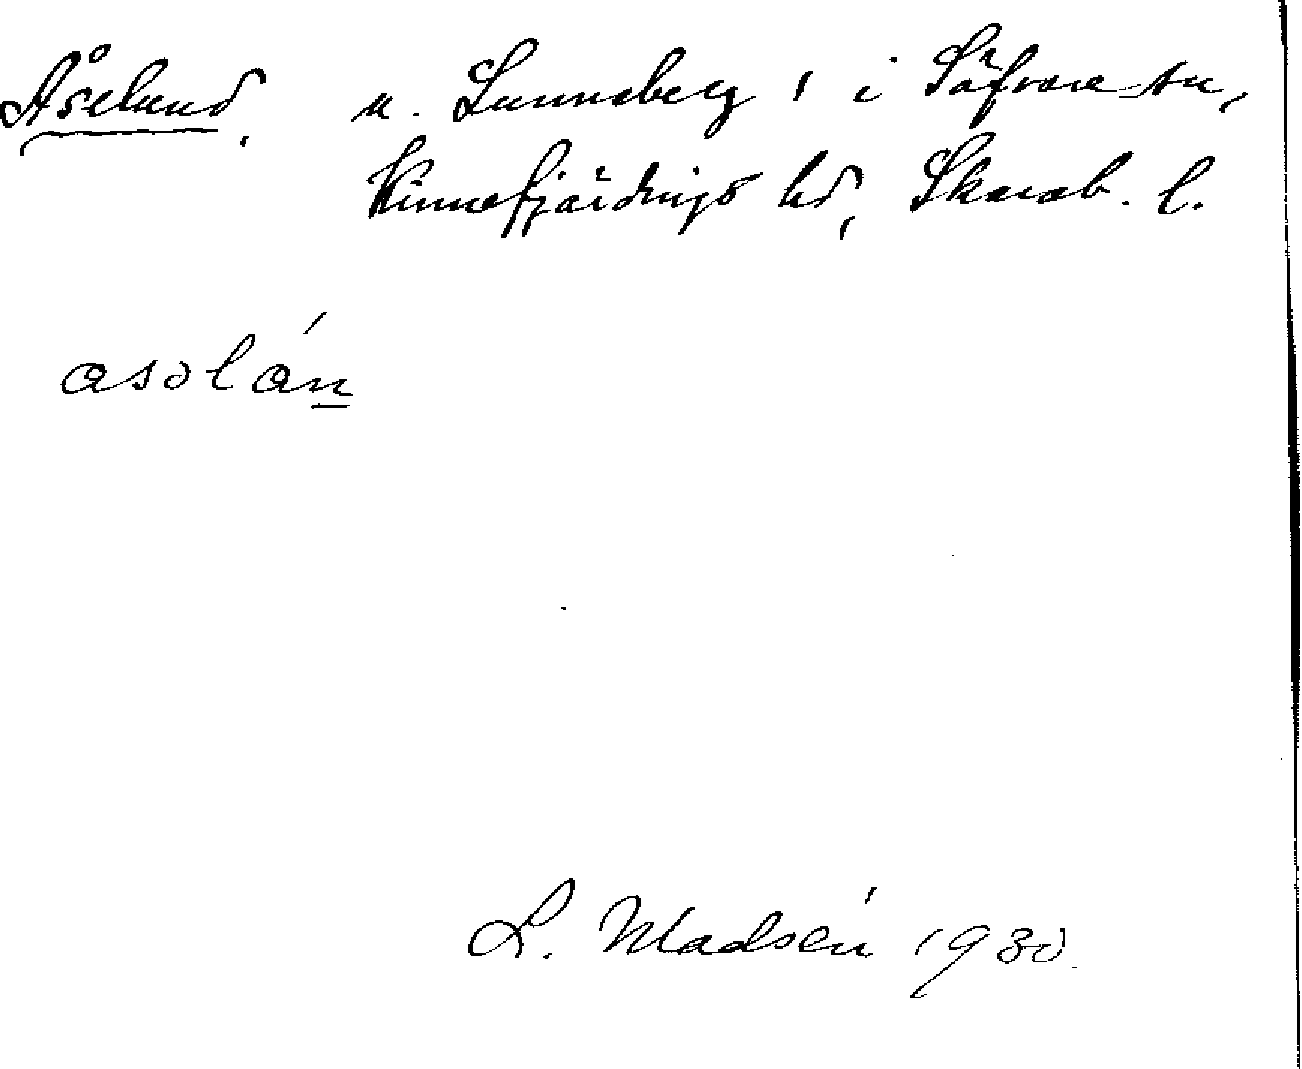 Åselund, u. Lunnaberg 1 i Säfvare sn,
Kinnefjärdings hd, Skarab. l.
asəlán
L. Madsén 1930.